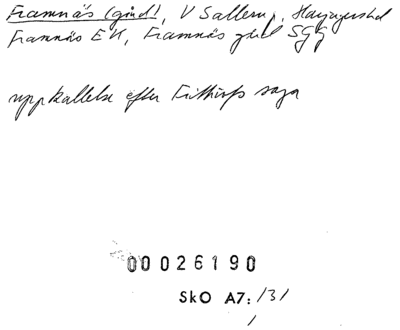 Framnäs (gård), V Sallerup, Harjagers hd
Framnäs EK, Framnäs gård SGG
uppkallelse efter Frithiofs saga
00026190
SkO A7: 131
1